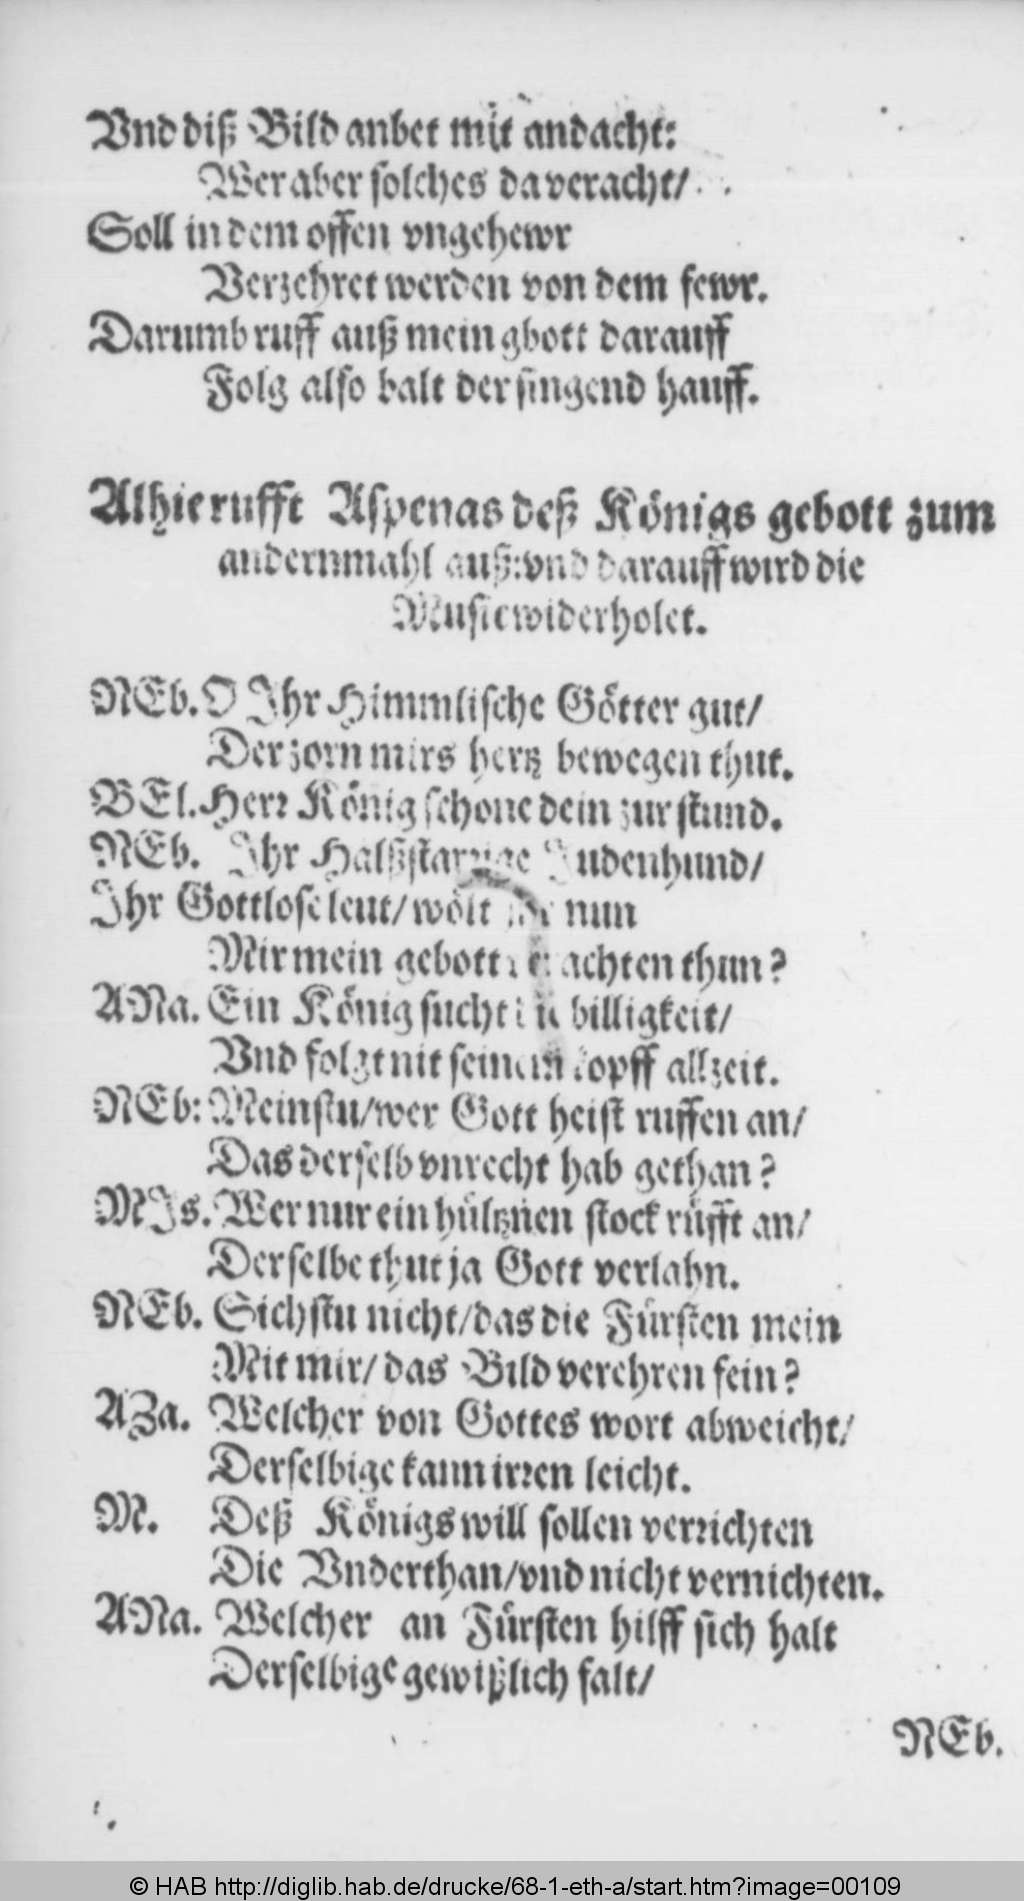 Vnd diß Bild anbet mit andacht:
Wer aber solches da veracht/
Soll in dem offen vngehewr
Verzehret werden von dem fewr.
Darumb ruff auß mein gbott darauff
Folg also balt der singend hauff.
Alhie rufft Aspenas deß Königs gebott zum
andernmahl auß: vnd darauff wird die
Music widerholet.
NEb. O Ihr Himmlische Götter gut/
Der zorn mirs hertz bewegen thut.
BEl. Herr König schone dein zur stund.
NEb. Ihr Halßstarrige Judenhund/
Ihr Gottlose leut/ wölt ihr nun
Mir mein gebott verachten thun?
ANa. Ein König sucht die billigkeit/
Vnd folgt nit seinem kopff allzeit.
NEb: Meinstu/ wer Gott heist ruffen an/
Das derselb vnrecht hab gethan?
MIs. Wer nur ein hültznen stock rüfft an/
Derselbe thut ja Gott verlahn.
NEb. Sichstu nicht/ das die Fürsten mein
Mit mir/ das Bild verehren fein?
AZa. Welcher von Gottes wort abweicht/
Derselbige kann irren leicht.
M. Deß Königs will sollen verrichten
Die Vnderthan/ vnd nicht vernichten.
ANa. Welcher an Fürsten hilff sich halt
Derselbige gewißlich falt/
NEb.
© HAB http://diglib.hab.de/drucke/68-1-eth-a/start.htm?image=00109